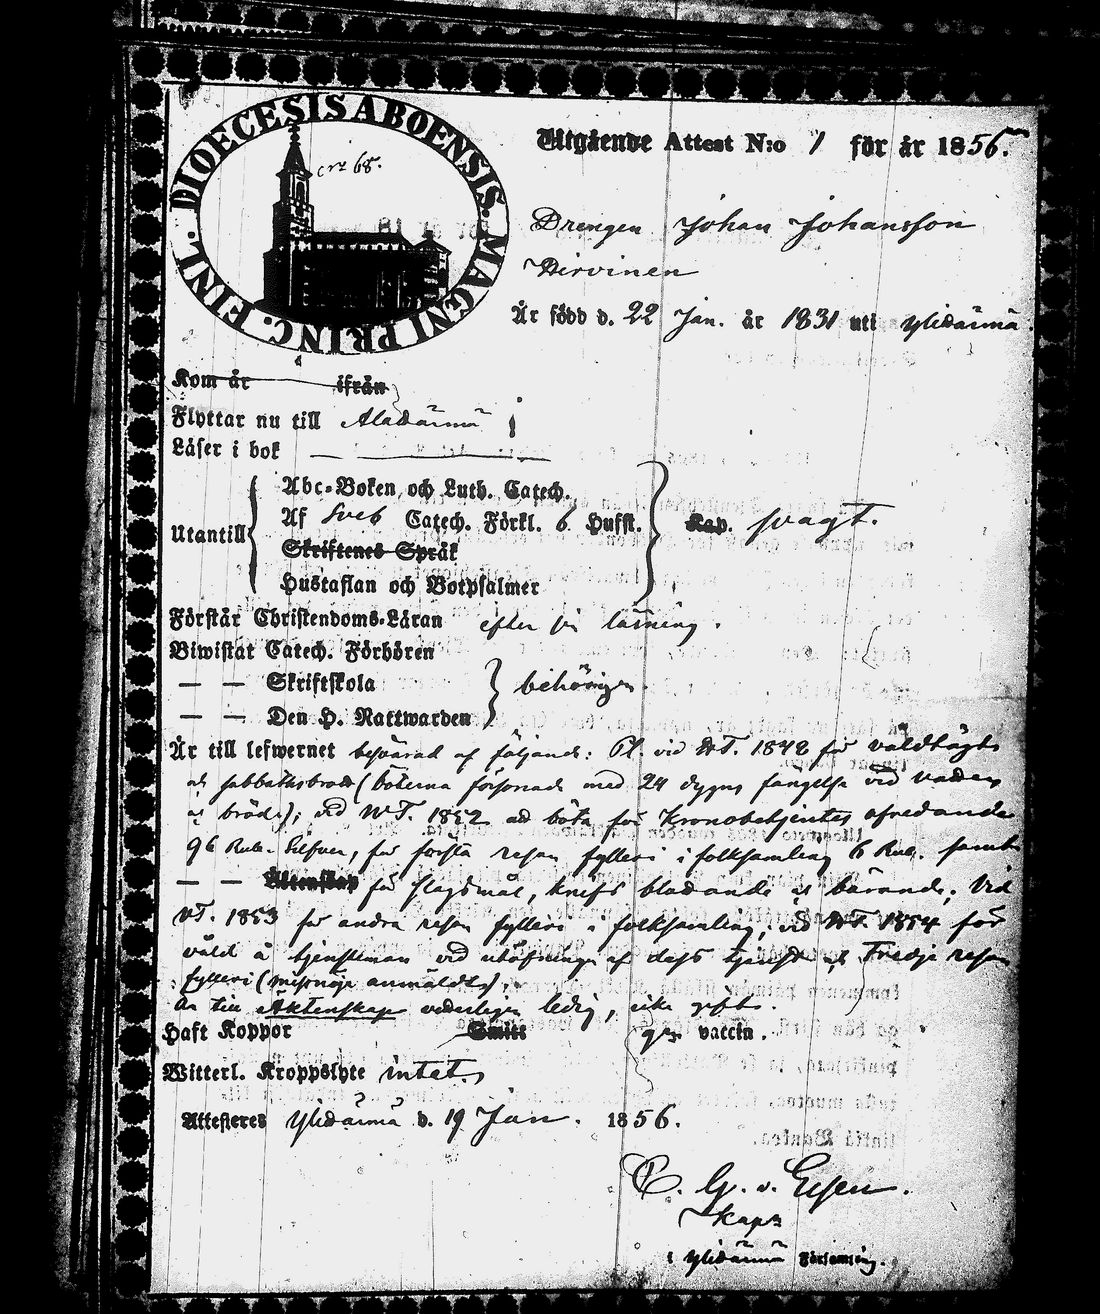 DIOECESIS ABOENSIS. MAGNI PRINC. FINL.
crt 68.
Utgående Attest N:o 1 för år 1856.
Drengen Johan Johansson
Hirvinen
Är född d. 22 Jan. år 1831 uti Ylihärmä.
Kom år ifrån
Flyttar nu till Alahärmä
Läser i bok
Utantill
Abc-Boken och Luth. Catech.
Af Sveb Catech. Förkl. 6 Hufst.
Skriftenes Språk
Hustaflan och Botpsalmer
Kap. svagt.
Förstår Christendoms-Läran efter sin läsning.
Biwistat Catech. Förhören
— — Skriftskola
— — Den H. Nattwarden
behörigen.
Är till lefwernet besvärad af följande: Pl. vid WT. 1848 för våldtägt
och sabbathsbrott (böterna försonade med 24 dygns fängelse vid vatten
och bröd); vid WT. 1852 att böta för Kronobetjentes ofredande
96 Rub. Silfver, för första resan fylleri i folksamling 6 Rub. samt
— — Äktenskap för slagsmål, knifs blottande och bärande; vid
VT. 1853 för andra resan fylleri i folksamling; vid WT. 1854 för
våld å tjensteman vid utöfningen af dess tjenst och Tredje resan
fylleri (missnöje anmäldt);
Är till Äktenskap vederligen ledig, icke gift.
Haft Koppor Smitt gm vaccin.
Witterl. Kroppslyte intet.
Attesteres Ylihärmä d. 19 Jan. 1856.
C. G. v. Essen.
Kapn
i Ylihärmä Församling.